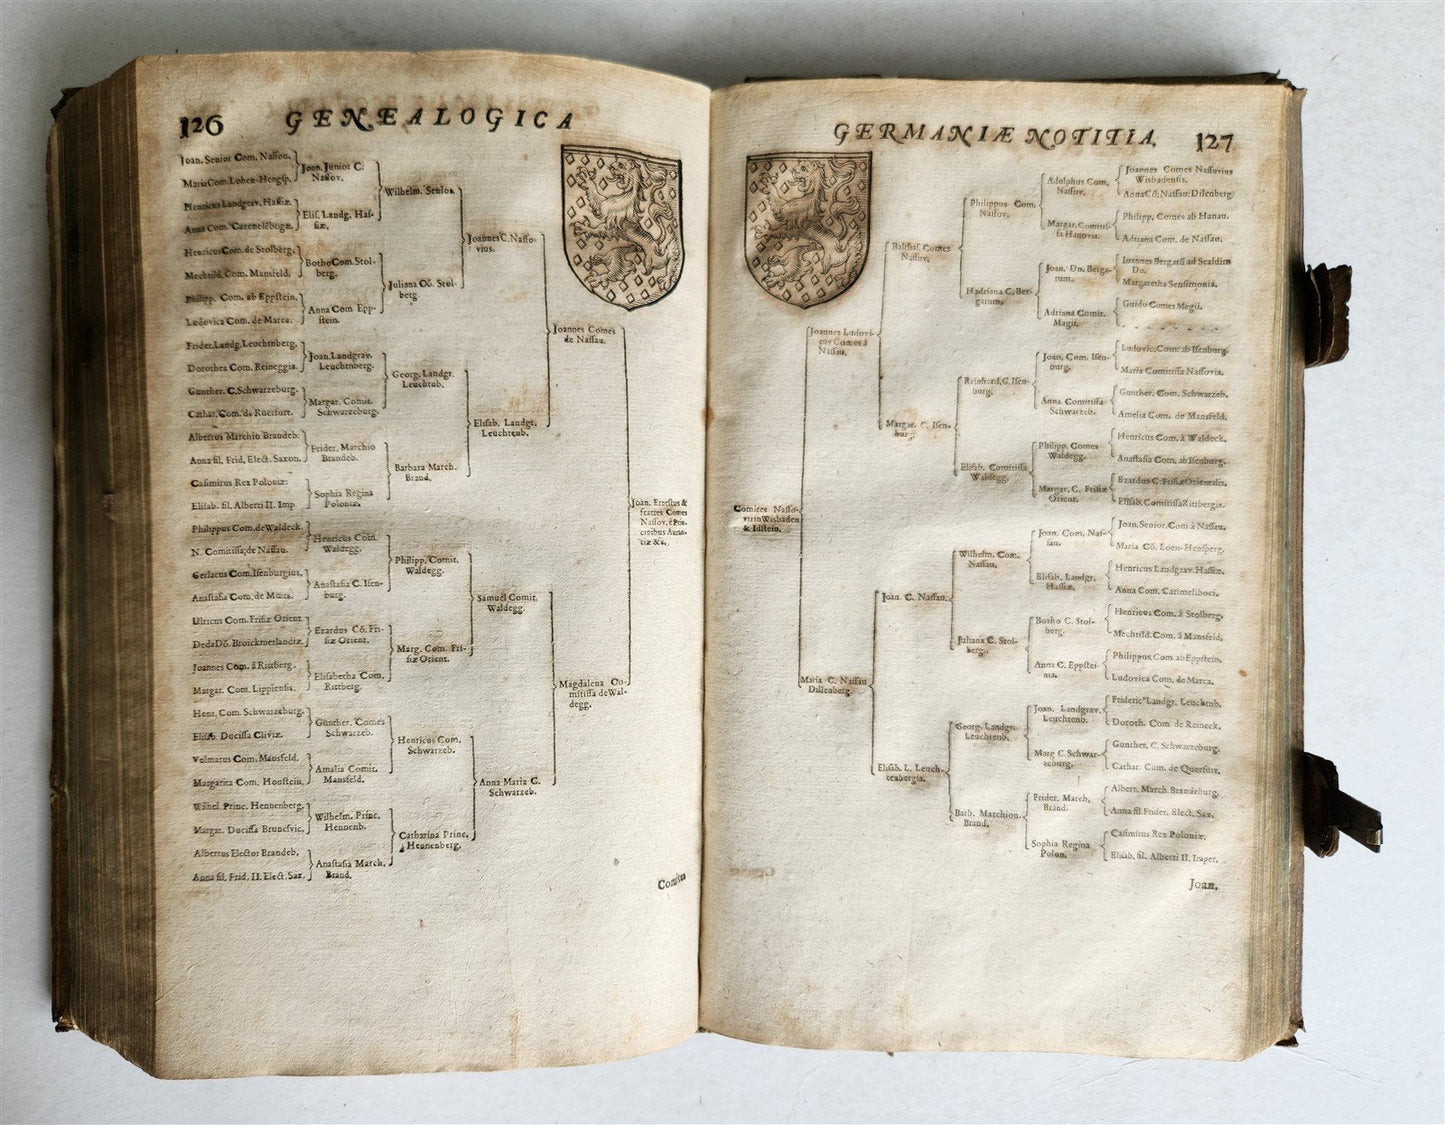 126 GENEALOGICA
Joan. Senior Com. Nassou.
Maria Com. Lohen-Hengsp.
Henricus Landgrav. Hassiæ.
Anna Com.
Henricus Com. de Stolberg.
Mechtild. Com. Mansfeld.
Philipp. Com. ab Eppstein.
Ludovica Com. de Marca.
Frider. Landg. Leuchtnberg.
Dorothea Com. Reineggia.
Gunther. C. Schwarzeburg.
Cathar. Com. de
Albertus Marchio Brandeb.
Anna fil. Frid. Elect. Saxon.
Casimirus Rex Poloniæ:
Elisab. fil. Alberti II. Imp.
Philippus Com. de Waldeck.
N. Comitissa de Nassau.
Gerlacus Com. Isenburgius.
Anastasia Com. de
Ulricus Com. Frisiæ Orient.
Deda Dō. Broickmerlandiæ.
Joannes Com. â Rittberg.
Margar. Com. Lippiensis.
Henr. Com. Schwarzeburg.
Elisab. Ducissa Cliviæ.
Volmarus Com. Mansfeld.
Margarita Com. Honstein.
Wilhel. Princ. Hennenberg.
Margar. Ducissa Brunsvic.
Albertus Elector Brandeb.
Anna fil. Frid. II. Elect. Sax.
Joan. Junior C.
Nassov.
Elis. Landg. Has-
siæ.
Botho Com. Stol-
berg.
Anna Com. Epp-
stein.
Joan. Landgrav.
Leuchtenberg.
Margar. Comit.
Schwartzburg.
Frider. Marchio
Brandeb.
Sophia Regina
Poloniæ.
Henricus Com.
Waldegg.
Anastasia C. Isen-
burg.
Ezardus Cō. Fri-
siæ Orient.
Elisabetha Com.
Rittberg.
Gunther. Comes
Schwarzeb.
Amalia Comit.
Mansfeld.
Wilhelm. Princ.
Hennenb.
Anastasia March.
Brand.
Wilhelm. Senior.
Juliana Cō. Stol-
berg
Georg. Landgr.
Leuchtnb.
Barbara March.
Brand.
Philipp. Comit.
Waldegg.
Marg. Com. Fri-
siæ Orient.
Henricus Com.
Schwarzeb.
Catharina Princ.
Hennenberg.
Joannes C. Nasso-
vius.
Elisab. Landgr.
Leuchtenb.
Samuel Comit.
Waldegg.
Anna Maria C.
Schwarzeb.
Joannes Comes
de Nassau.
Magdalena Co-
mitissa de Wal-
degg.
Joan. Ernestus &
fratres Comes
Nassov. è Prin-
cipibus Auraa-
tiæ &c.
Comites
GERMANIÆ NOTITIA. 127
Comites Nasso-
vii in Wisbaden
& Idstein.
Joannes Ludovi-
cus Comes â
Nassau.
Maria C. Nassau
Dillenberg.
Balthas. Comes
Nassov.
Margar. C. Isen-
burg.
Joan. C. Nassau.
Elisab. L. Leuch-
tenbergia.
Philippus Com.
Nassov.
Hadriana C. Ber-
garum.
Reinhard. C. Isen-
burg.
Elisab. Comitissa
Waldegg.
Wilhelm. Com.
Nassau.
Juliana C. Stol-
berg.
Georg. Landgr.
Leuchtenb.
Barb. Marchion.
Brand.
Adolphus Com.
Nassov.
Margar. Comitis-
sa Hanovia.
Joan. Dn. Berga-
rum.
Adriana Comit.
Magii.
Joan. Com. Isen-
burg.
Anna Comitissa
Schwarzeb.
Philipp. Comes
Waldegg.
Margar. C. Frisiæ
Orient.
Joan. Com. Nas-
sau.
Elisab. Landgr.
Hassiæ.
Botho C. Stol-
berg.
Anna C. Eppstei-
nia.
Joan. Landgrav.
Leuchtenb.
Marg C. Schwar-
tzburg.
Frider. March.
Brand.
Sophia Regina
Polon.
Joannes Comes Nassovius
Wisbadensis.
Anna Cō. Nassau. Dilenberg.
Philipp. Comes ab Hanau.
Adriana Com. de Nassau.
Joannes Bergarū ad Scaldim
Dn.
Margaretha Sensimonia.
Guido Comes Megii.
Ludovic. Com. ab Isenburg.
Maria Comitissa Nassovia.
Gunther. Com. Schwarzeb.
Amelia Com. de Mansfeld.
Henricus Com. â Waldeck.
Anastasia Com. ab Isenburg.
Ezardus C. Frisiæ Orientalis.
Elisab. Comitissa Rittbergia.
Joan. Senior. Com â Nassau.
Maria Cō. Loen-Hensperg.
Henricus Landgrav. Hassiæ.
Anna Com. Carimeliboci.
Henricus Com. â Stolberg.
Mechtild. Com. â Mansfeld.
Philippus Com. ab Eppstein.
Ludovica Com. de Marca.
Frideric. Landgr. Leuchtnb.
Doroth. Com. de Reineck.
Gunther. C. Schwarzeburg.
Cathar. Com. de Querfurt.
Albert. March. Brandeburg.
Anna fil. Frider. Elect. Sax.
Casimirus Rex Poloniæ.
Elisab. fil. Alberti II. Imper.
Joan.